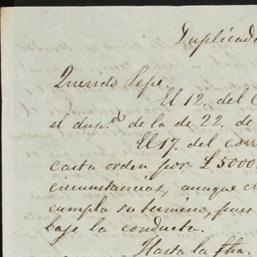 Duplicado
Querido Pepe.
El 12. del C
el dupdo de la de 22. de
El 17. del corr
carta orden por £5000
circunstancias, aunque cr
cumpla su termino, pues
baje la conducta.
Hasta la fha.